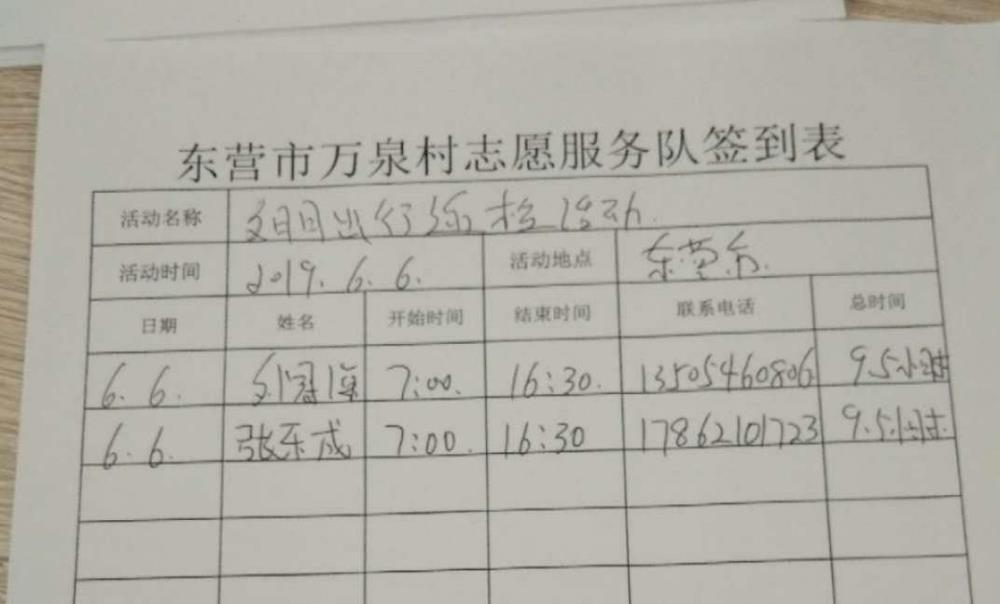 东营市万泉村志愿服务队签到表
活动名称 出行 活动
活动时间 2019.6.6. 活动地点 东营市.
日期 姓名 开始时间 结束时间 联系电话 总时间
6.6. 7:00. 16:30. 13505460806 9.5小时
6.6. 张乐成 7:00. 16:30 17862101723 9.5小时